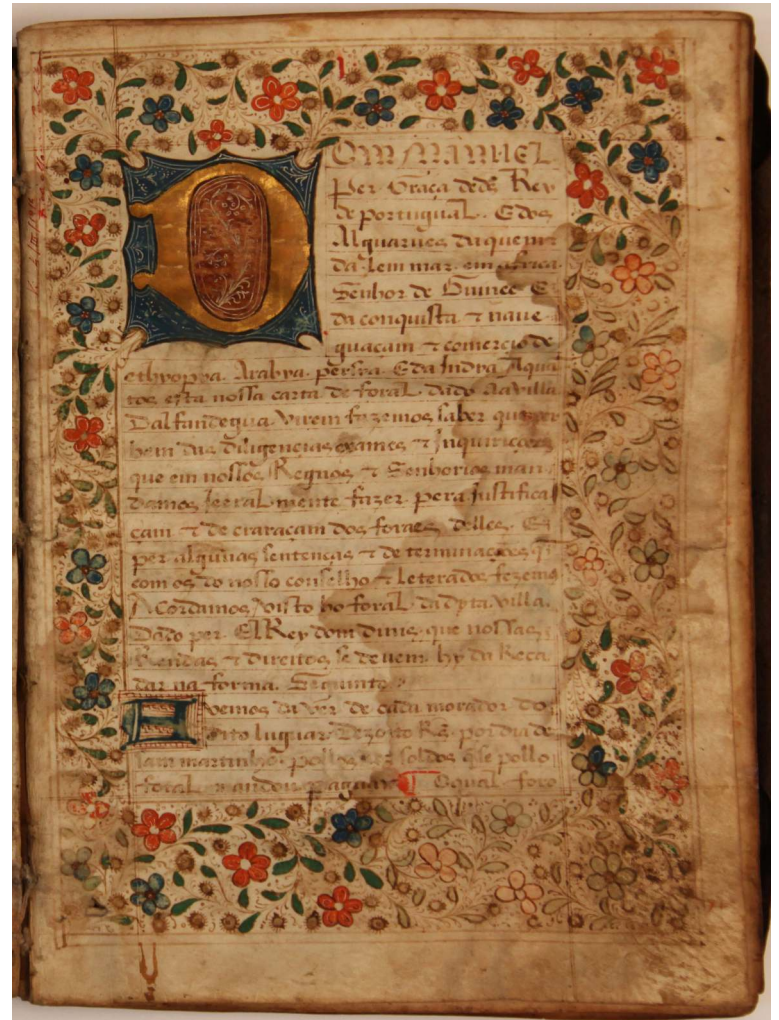 DOM MANUEL
per Graça de ds Rey
de portugual. E dos
Alguarves daquem z
da lem mar em africa
Senhor de Guinee E
da conquista z nave
guacam z comercio de
ethyopya. Arabya. persya. E da Indya. A qua
tos esta nossa carta de foral dado aa villa
Dalfandegua virem fazemos saber que per
bem das diligencias exames z Inquirições
que em nossos Regnos z Senhorios man
damos jeeral mente fazer pera justifica
cam z de craraçam dos foraes delles. E
per alguũas sentenças z de terminações q
com os do nosso conselho z leterados fezemos
Acordamos visto ho foral da dyta villa.
Dado per El Rey dom dinis que nossas
Rendas z direitos se devem hy da Reca
dar na forma. Seguinte
Avemos da ver de cada morador do
dito luguar Dezoito Rs. por dia de
sam martinho pollos soldos q se pollo
foral mandou paguar O qual foro